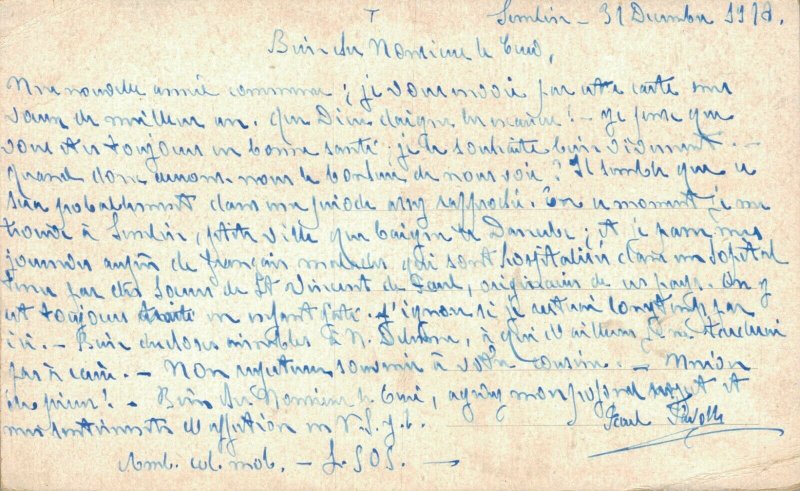 Semlin - 31 Décembre 1918.
Bien cher Monsieur le Curé,
Une nouvelle année commence ; je vous envoie par cette carte mes
vœux de meilleur an. Que Dieu daigne les exaucer ! - Je pense que
vous êtes toujours en bonne santé ; je le souhaite bien vivement. -
Quand donc aurons-nous le bonheur de nous voir ? Il semble que ce
sera probablement dans une période assez rapprochée. En ce moment je me
trouve à Semlin, petite ville que baigne le Danube ; et je passe mes
journées auprès de français malades qui sont hospitalisés dans un hôpital
tenu par des Sœurs de St Vincent de Paul, originaires de ce pays. On y
est toujours traité en enfant gâté. J'ignore si je resterai longtemps par
ici. - Bien des choses aimables à M. à qui d'ailleurs je ne tarderai
pas à écrire. - Mon respectueux souvenir à votre cousine. - Union
de prière ! - Bien cher Monsieur le Curé, agréez mon profond respect et
mes sentiments d'affection en N. S. J. C.
Paul
Amb. col. mob. - S.P. 508. -